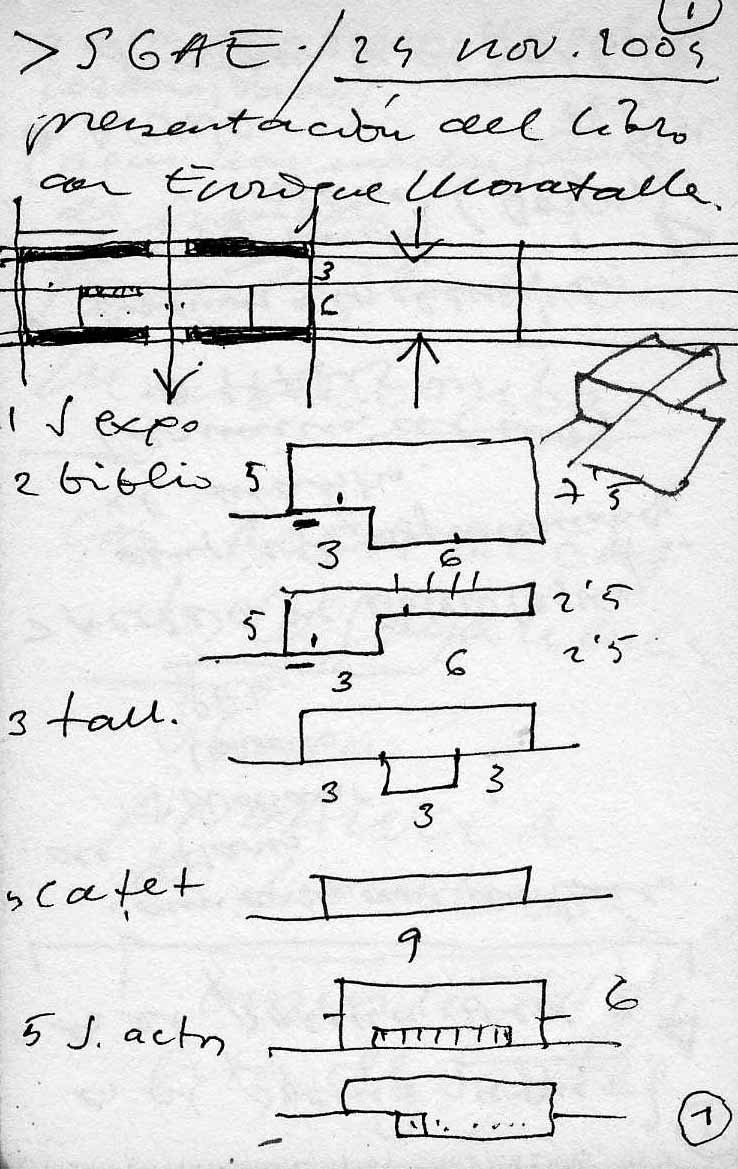 1
> SGAE. / 24 nov. 2004
presentación del libro
con Enrique Moratalla.
3
6
1 S expo
2 biblio 5 7'5
3 6
5 2'5
3 6 2'5
3 tall.
3 3 3
4 cafet
9
5 S. actos 6
1